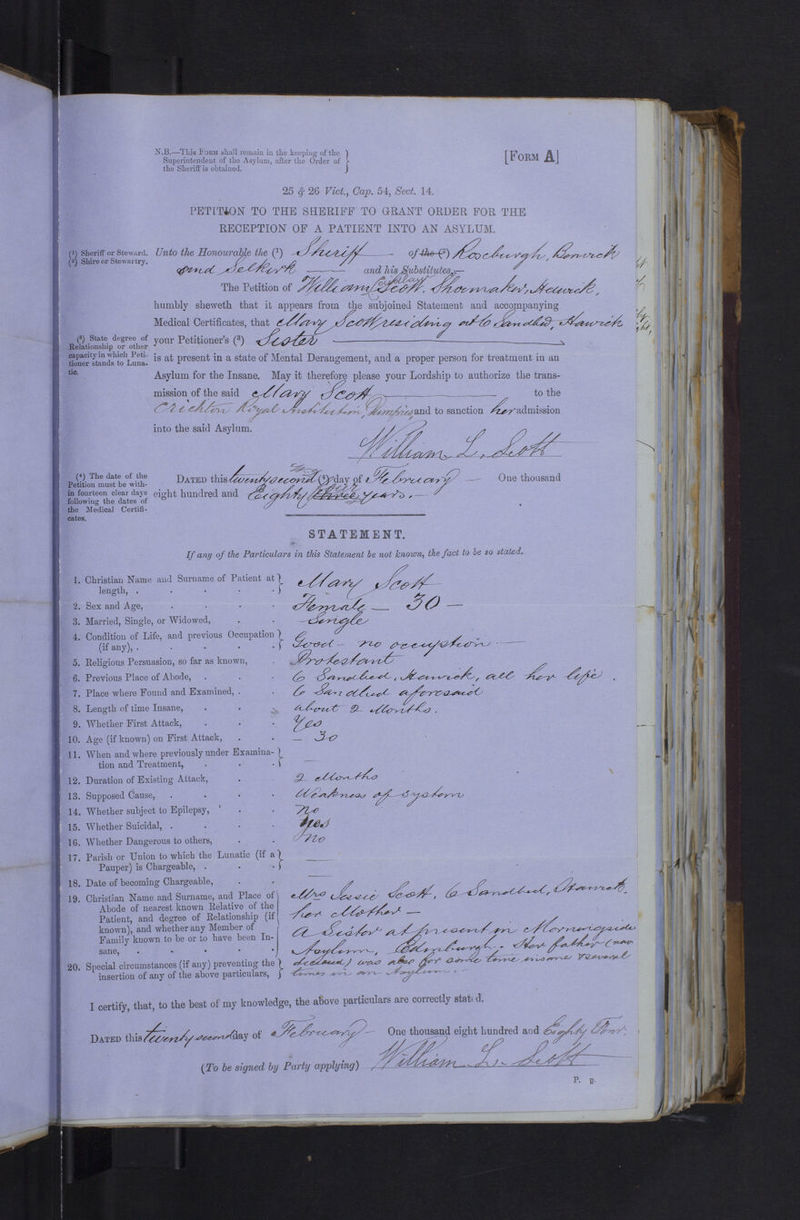 N.B.—This Form shall remain in the keeping of the
Superintendent of the Asylum, after the Order of
the Sheriff is obtained.
[Form A]
25 & 26 Vict., Cap. 54, Sect. 14.
PETITION TO THE SHERIFF TO GRANT ORDER FOR THE
RECEPTION OF A PATIENT INTO AN ASYLUM.
(¹) Sheriff or Steward.
(²) Shire or Stewartry.
Unto the Honourable the (¹) Sheriff of the (²) Roxburgh, Berwick
and Selkirk and his Substitutes,—
The Petition of William Scott, Shoemaker, Hawick,
humbly sheweth that it appears from the subjoined Statement and accompanying
Medical Certificates, that Mary Scott residing at 6 Sandbed, Hawick
(³) State degree of
Relationship or other
capacity in which Peti-
tioner stands to Luna-
tic.
your Petitioner's (³) Sister
is at present in a state of Mental Derangement, and a proper person for treatment in an
Asylum for the Insane. May it therefore please your Lordship to authorize the trans-
mission of the said Mary Scott to the
Crichton Royal Institution, Dumfries and to sanction her admission
into the said Asylum.
William L. Scott
(⁴) The date of the
Petition must be with-
in fourteen clear days
following the dates of
the Medical Certifi-
cates.
Dated this twenty second (⁴) day of February — One thousand
eight hundred and Eighty three years.—
STATEMENT.
If any of the Particulars in this Statement be not known, the fact to be so stated.
1. Christian Name and Surname of Patient at
length, . Mary Scott
2. Sex and Age, Female — 30 —
3. Married, Single, or Widowed, Single
4. Condition of Life, and previous Occupation
(if any), . Good — no occupation —
5. Religious Persuasion, so far as known, Protestant
6. Previous Place of Abode, 6 Sandbed, Hawick, all her life.
7. Place where Found and Examined, 6 Sandbed aforesaid
8. Length of time Insane, about 2 Months.
9. Whether First Attack, Yes
10. Age (if known) on First Attack, — 30
11. When and where previously under Examina-
tion and Treatment, —
12. Duration of Existing Attack, 2 Months
13. Supposed Cause, Weakness of System
14. Whether subject to Epilepsy, no
15. Whether Suicidal, Yes
16. Whether Dangerous to others, no
17. Parish or Union to which the Lunatic (if a
Pauper) is Chargeable, —
18. Date of becoming Chargeable, —
19. Christian Name and Surname, and Place of
Abode of nearest known Relative of the
Patient, and degree of Relationship (if
known), and whether any Member of
Family known to be or to have been In-
sane,
Mrs Scott, 6 Sandbed, Hawick.
her Mother —
A Sister at present in Morningside
Asylum, Edinburgh. Her father (now
deceased) was also for some time insane & several
times in an Asylum.
20. Special circumstances (if any) preventing the
insertion of any of the above particulars,
I certify, that, to the best of my knowledge, the above particulars are correctly stated.
Dated this twenty second day of February — One thousand eight hundred and Eighty Four.
(To be signed by Party applying) William L. Scott